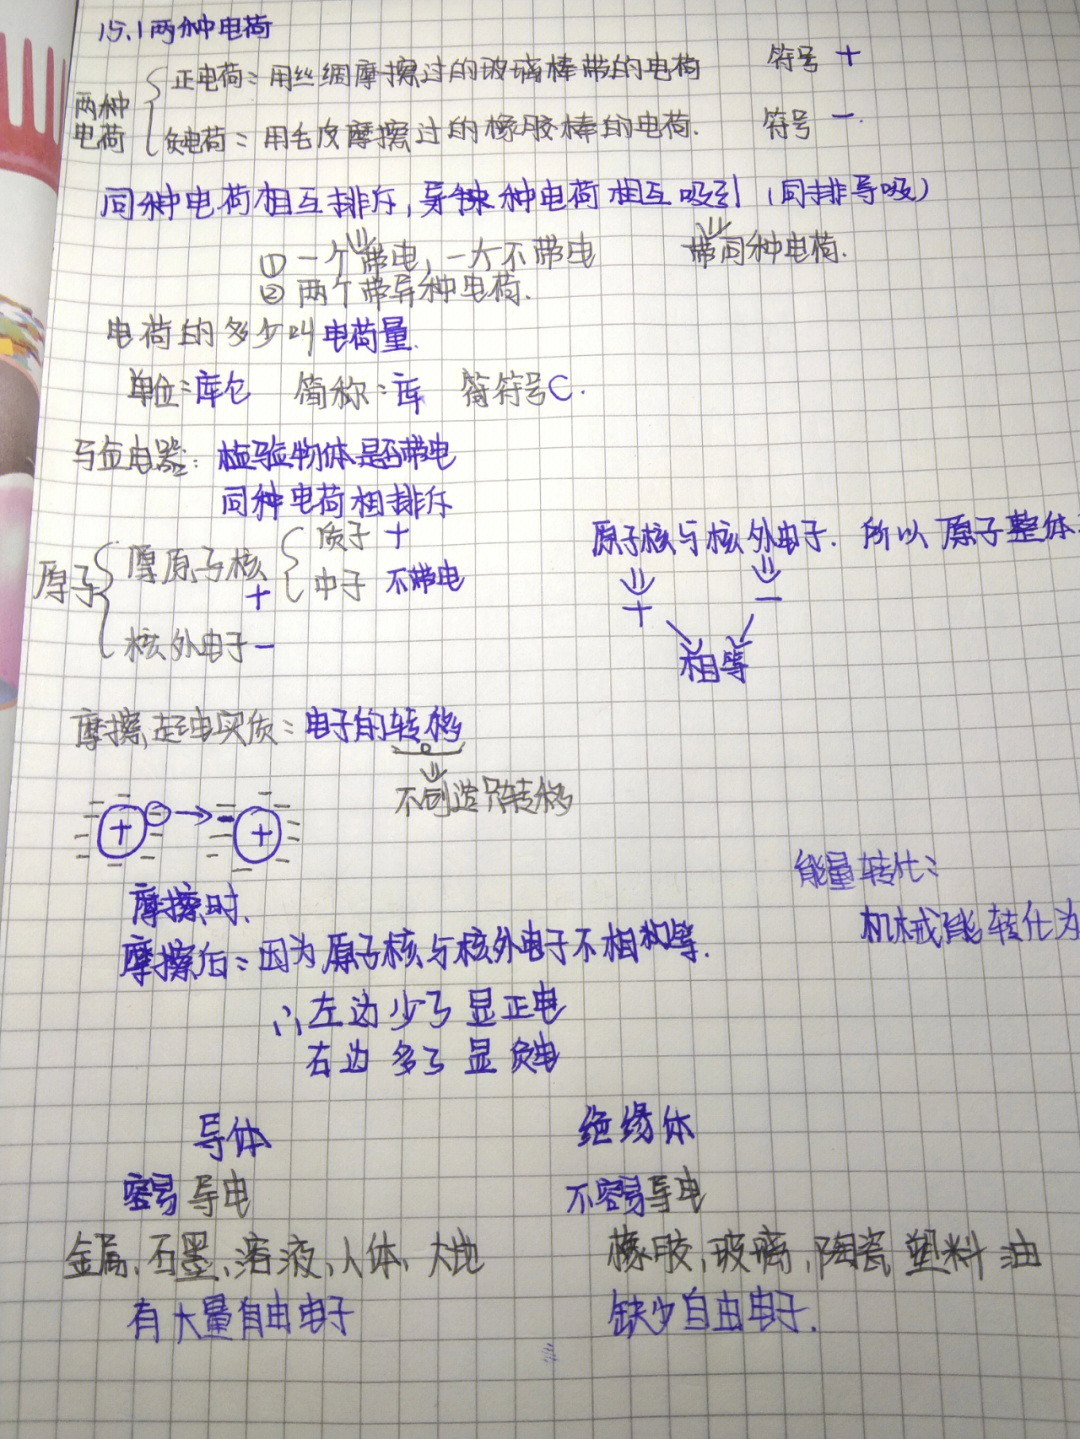 15.1两种电荷
正电荷：用丝绸摩擦过的玻璃棒带的电荷 符号 +
两种电荷
负电荷：用毛皮摩擦过的橡胶棒的电荷. 符号 -
同种电荷相互排斥, 种电荷相互吸引（同排导吸）
①一个带电,一个不带电 带同种电荷.
②两个带异种电荷.
电荷的多少叫电荷量.
单位：库仑 简称：库 符号C.
验电器：检验物体是否带电
同种电荷相排斥
质子 + 原子核与核外电子. 所以原子整体
原子 原子核 + 中子 不带电 + -
核外电子 - 相等
摩擦起电实质：电子的转移
不创造只转移
+ - → - +
能量转化：
摩擦时. 机械能转化为
摩擦后：因为原子核与核外电子不相等.
∴左边少了显正电
右边多了显负电
导体 绝缘体
容易导电 不容易导电
金属,石墨,溶液,人体,大地 橡胶,玻璃,陶瓷 塑料 油
有大量自由电子 缺少自由电子.